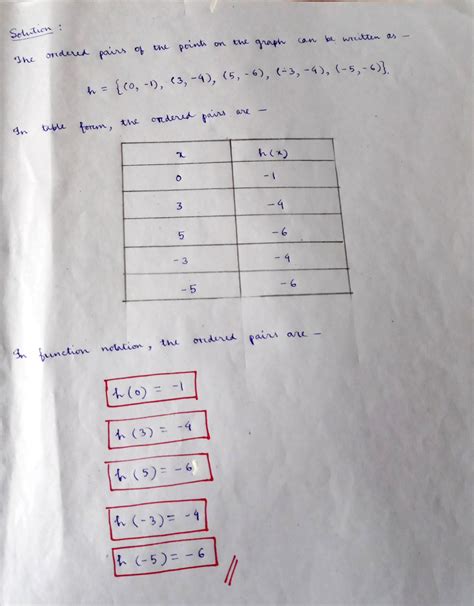 Solution :
The ordered pairs of the points on the graph can be written as –
h = {(0, -1), (3, -4), (5, -6), (-3, -4), (-5, -6)}.
In table form, the ordered pairs are –
x h(x)
0 -1
3 -4
5 -6
-3 -4
-5 -6
In function notation, the ordered pairs are –
h(0) = -1
h(3) = -4
h(5) = -6
h(-3) = -4
h(-5) = -6